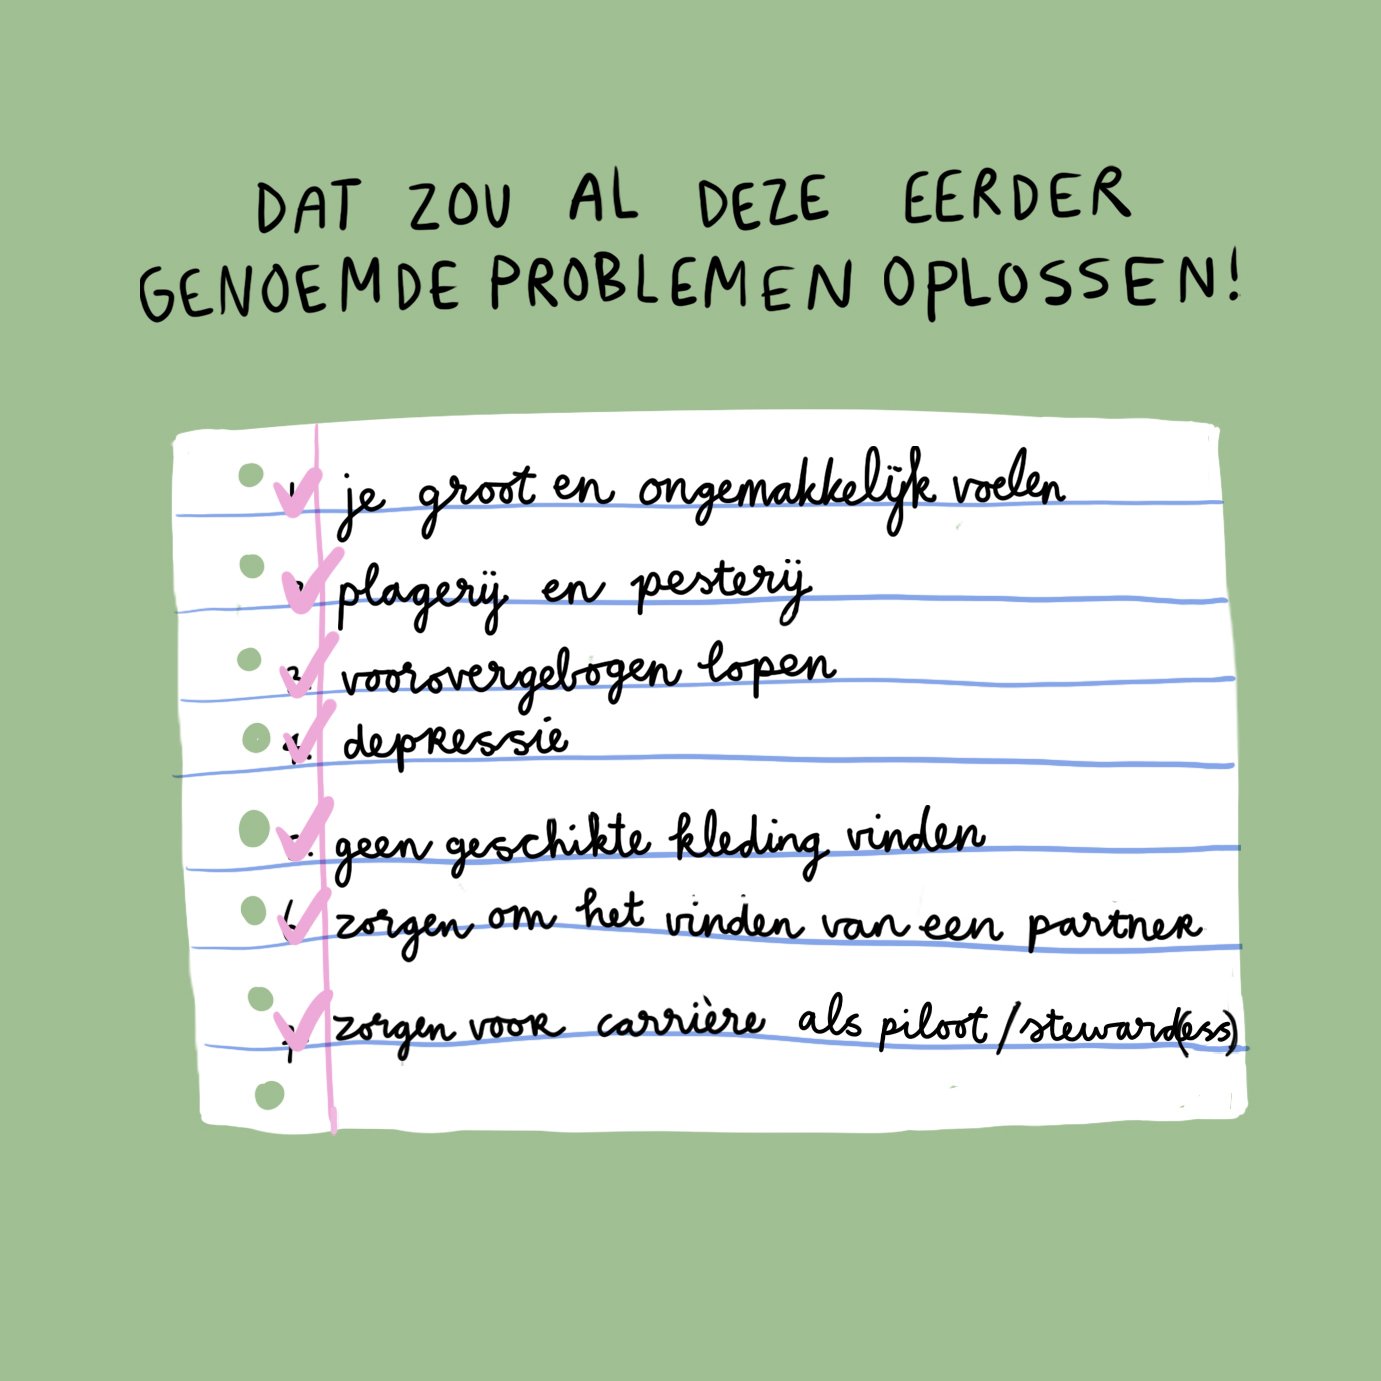 DAT ZOU AL DEZE EERDER
GENOEMDE PROBLEMEN OPLOSSEN!
1. je groot en ongemakkelijk voelen
plagerij en pesterij
3. voorovergebogen lopen
4. depressie
geen geschikte kleding vinden
zorgen om het vinden van een partner
zorgen voor carrière als piloot/steward(ess)